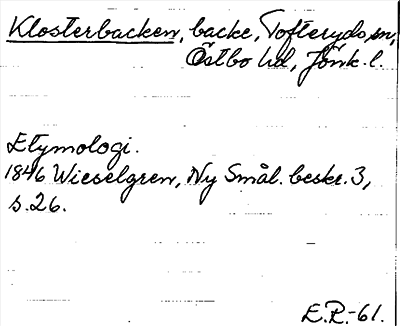 Klosterbacken, backe, Tofteryds sn,
Östbo hd, Jönk. l.
Etymologi.
1846 Wieselgren, Ny Smål. beskr. 3,
s. 26.
E.P.-61.